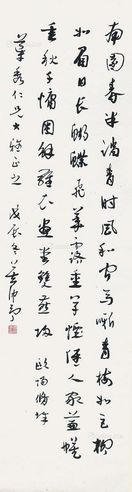 南園春半踏青時風和聞馬嘶青梅如豆柳
如眉日長蝴蝶飛花露重草煙低人家簾幕
垂秋千慵困解羅衣畫堂雙燕歸 歐陽修詞
草秀仁兄大雅正之 戊辰冬